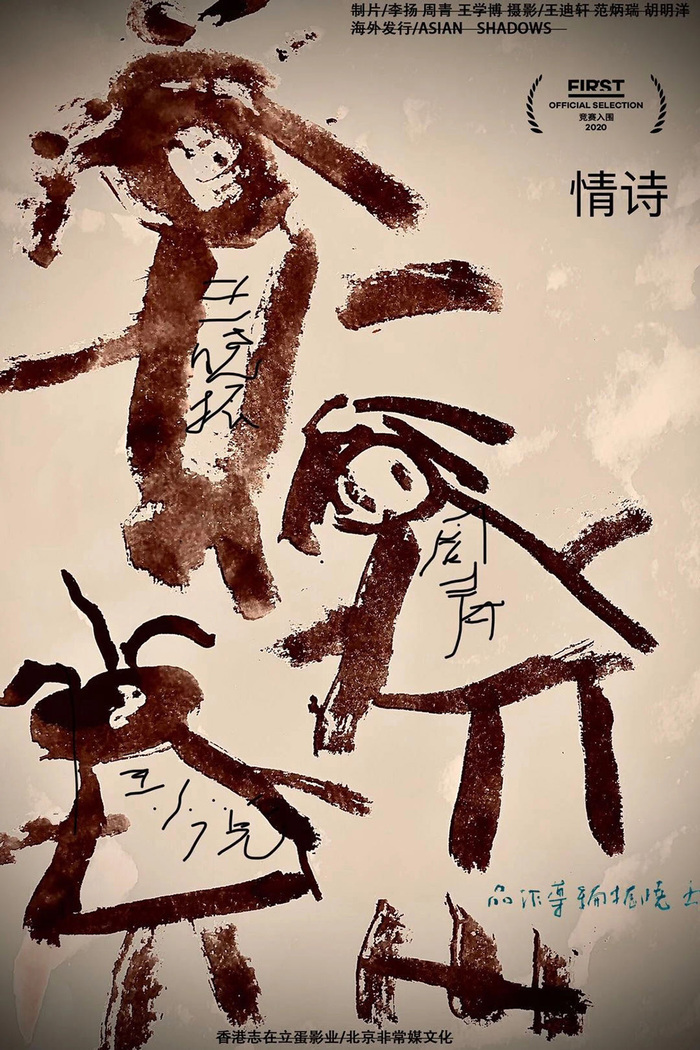 制片/李扬 周青 王学博 摄影/王迪轩 范炳瑞 胡明洋
海外发行/ASIAN SHADOWS
FIRST
OFFICIAL SELECTION
竞赛入围
2020
情诗
王晓振
周青
王
王曉振編導作品
香港志在立蛋影业/北京非常媒文化